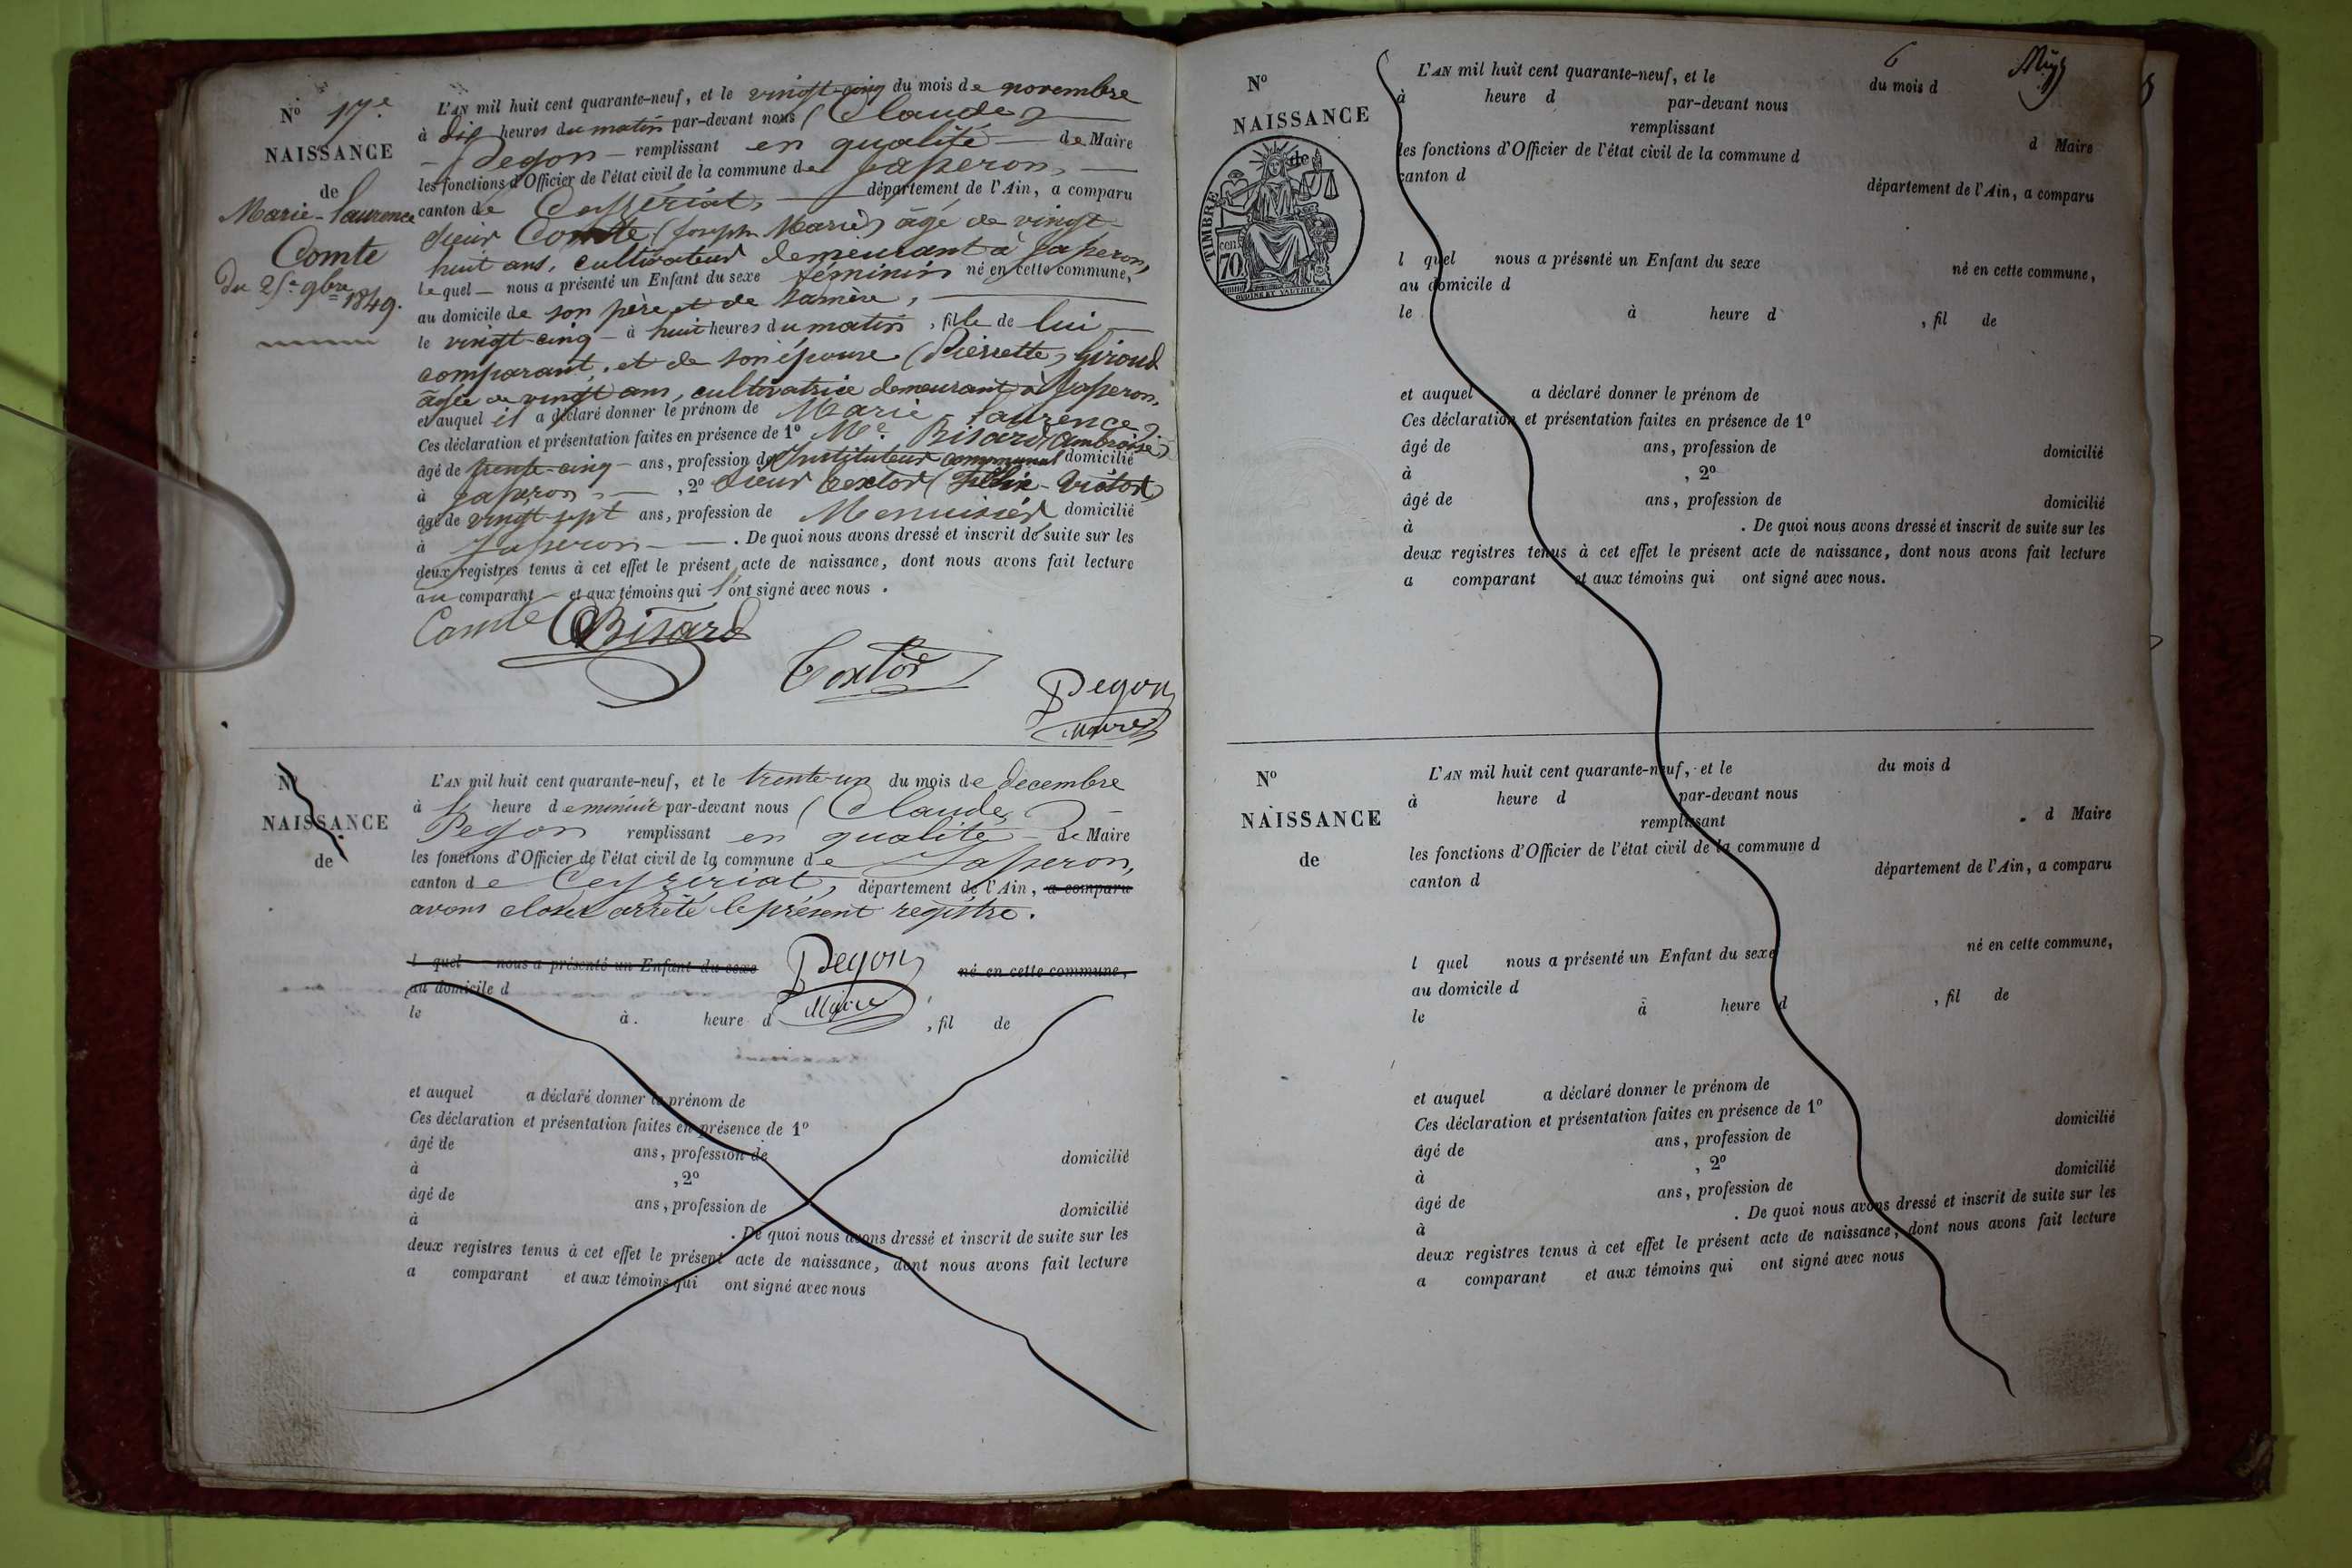 N° 17e.
NAISSANCE
de
Marie-Laurence
Comte
Du 25e 9bre 1849.
L'AN mil huit cent quarante-neuf, et le vingt-cinq du mois de novembre
à dix heures du matin par-devant nous (Claude)
Pegon remplissant en qualité de Maire
les fonctions d'Officier de l'état civil de la commune de Jasseron,
canton de Ceyzériat, département de l'Ain, a comparu
sieur Comte (Joseph Marie) âgé de vingt-
huit ans, cultivateur demeurant à Jasseron,
lequel nous a présenté un Enfant du sexe féminin né en cette commune,
au domicile de son père et de sa mère,
le vingt-cinq à huit heures du matin, fille de lui
comparant, et de son épouse (Pierrette) Giroud
âgée de vingt ans, cultivatrice demeurant à Jasseron,
et auquel il a déclaré donner le prénom de Marie-Laurence.
Ces déclaration et présentation faites en présence de 1° Me. Bisard (Ambroise)
âgé de trente-cinq ans, profession d'Instituteur communal domicilié
à Jasseron, 2° Sieur Textor (Félix-Victor)
âgé de vingt-sept ans, profession de Menuisier domicilié
à Jasseron . De quoi nous avons dressé et inscrit de suite sur les
deux registres tenus à cet effet le présent acte de naissance, dont nous avons fait lecture
au comparant et aux témoins qui l'ont signé avec nous .
Comte Bisard
Textor
Pegon
maire
N°
NAISSANCE
de
L'AN mil huit cent quarante-neuf, et le trente-un du mois de décembre
à heure de minuit par-devant nous (Claude)
Pegon remplissant en qualité de Maire
les fonctions d'Officier de l'état civil de la commune de Jasseron,
canton de Ceyzériat, département de l'Ain, a comparu
avons clos et arrêté le présent registre.
l quel nous a présenté un Enfant du sexe né en cette commune,
Pegon
Maire
au domicile d
le à . heure d , fil de
et auquel a déclaré donner le prénom de
Ces déclaration et présentation faites en présence de 1°
âgé de ans, profession de domicilié
à , 2°
âgé de ans, profession de domicilié
à . De quoi nous avons dressé et inscrit de suite sur les
deux registres tenus à cet effet le présent acte de naissance, dont nous avons fait lecture
a comparant et aux témoins qui ont signé avec nous
6
N°
NAISSANCE
de
TIMBRE
70 cen
OUDINE ET VAUTHIER
L'AN mil huit cent quarante-neuf, et le du mois d
à heure d par-devant nous
remplissant d Maire
les fonctions d'Officier de l'état civil de la commune d
canton d département de l'Ain, a comparu
l quel nous a présenté un Enfant du sexe né en cette commune,
au domicile d
le à heure d , fil de
et auquel a déclaré donner le prénom de
Ces déclaration et présentation faites en présence de 1°
âgé de ans, profession de domicilié
à , 2°
âgé de ans, profession de domicilié
à . De quoi nous avons dressé et inscrit de suite sur les
deux registres tenus à cet effet le présent acte de naissance, dont nous avons fait lecture
a comparant et aux témoins qui ont signé avec nous.
N°
NAISSANCE
de
L'AN mil huit cent quarante-neuf, et le du mois d
à heure d par-devant nous
remplissant d Maire
les fonctions d'Officier de l'état civil de la commune d
canton d département de l'Ain, a comparu
l quel nous a présenté un Enfant du sexe né en cette commune,
au domicile d
le à heure d , fil de
et auquel a déclaré donner le prénom de
Ces déclaration et présentation faites en présence de 1°
âgé de ans, profession de domicilié
à , 2°
âgé de ans, profession de domicilié
à . De quoi nous avons dressé et inscrit de suite sur les
deux registres tenus à cet effet le présent acte de naissance, dont nous avons fait lecture
a comparant et aux témoins qui ont signé avec nous